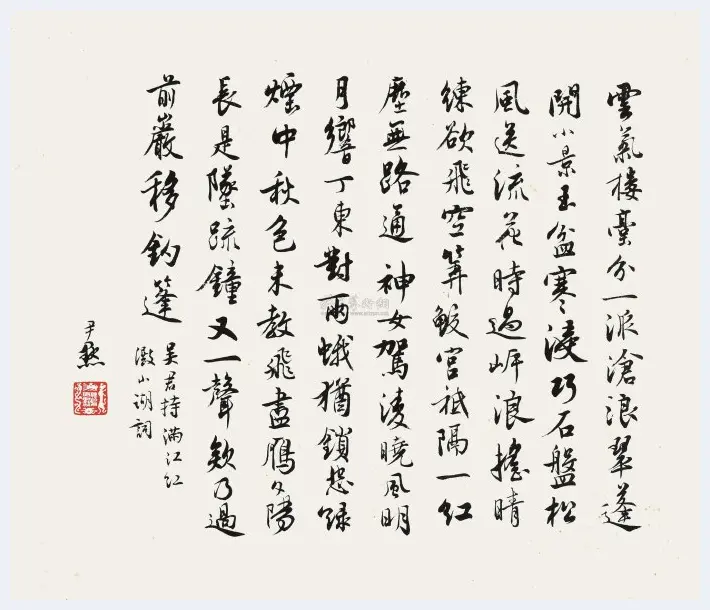 雲氣樓臺分一派滄浪翠蓬
開小景玉盆寒浸巧石盤松
風送流花時過岸浪搖晴
練欲飛空算鮫宮祇隔一紅
塵無路通 神女駕凌曉風明
月響丁東對兩蛾猶鎖怨綠
煙中秋色未教飛盡鴈夕陽
長是墜疏鐘又一聲欸乃過
前巖移釣篷
吳君特滿江紅
澱山湖詞
尹默